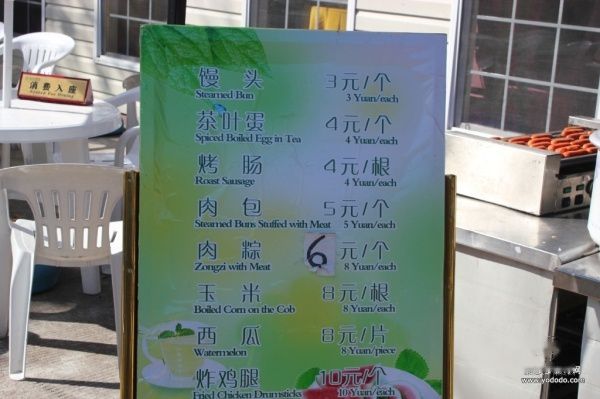 消费入座
馒头 3元/个
Steamed Bun 3 Yuan/each
茶叶蛋 4元/个
Spiced Boiled Egg in Tea 4 Yuan/each
烤肠 4元/根
Roast Sausage 4 Yuan/each
肉包 5元/个
Steamed Buns Stuffed with Meat 5 Yuan/each
肉粽 6元/个
Zongzi with Meat 8 Yuan/each
玉米 8元/根
Boiled Corn on the Cob 8 Yuan/each
西瓜 8元/片
Watermelon 8 Yuan/piece
炸鸡腿 10元/个
Fried Chicken Drumsticks 10 Yuan/each
www.yododo.com